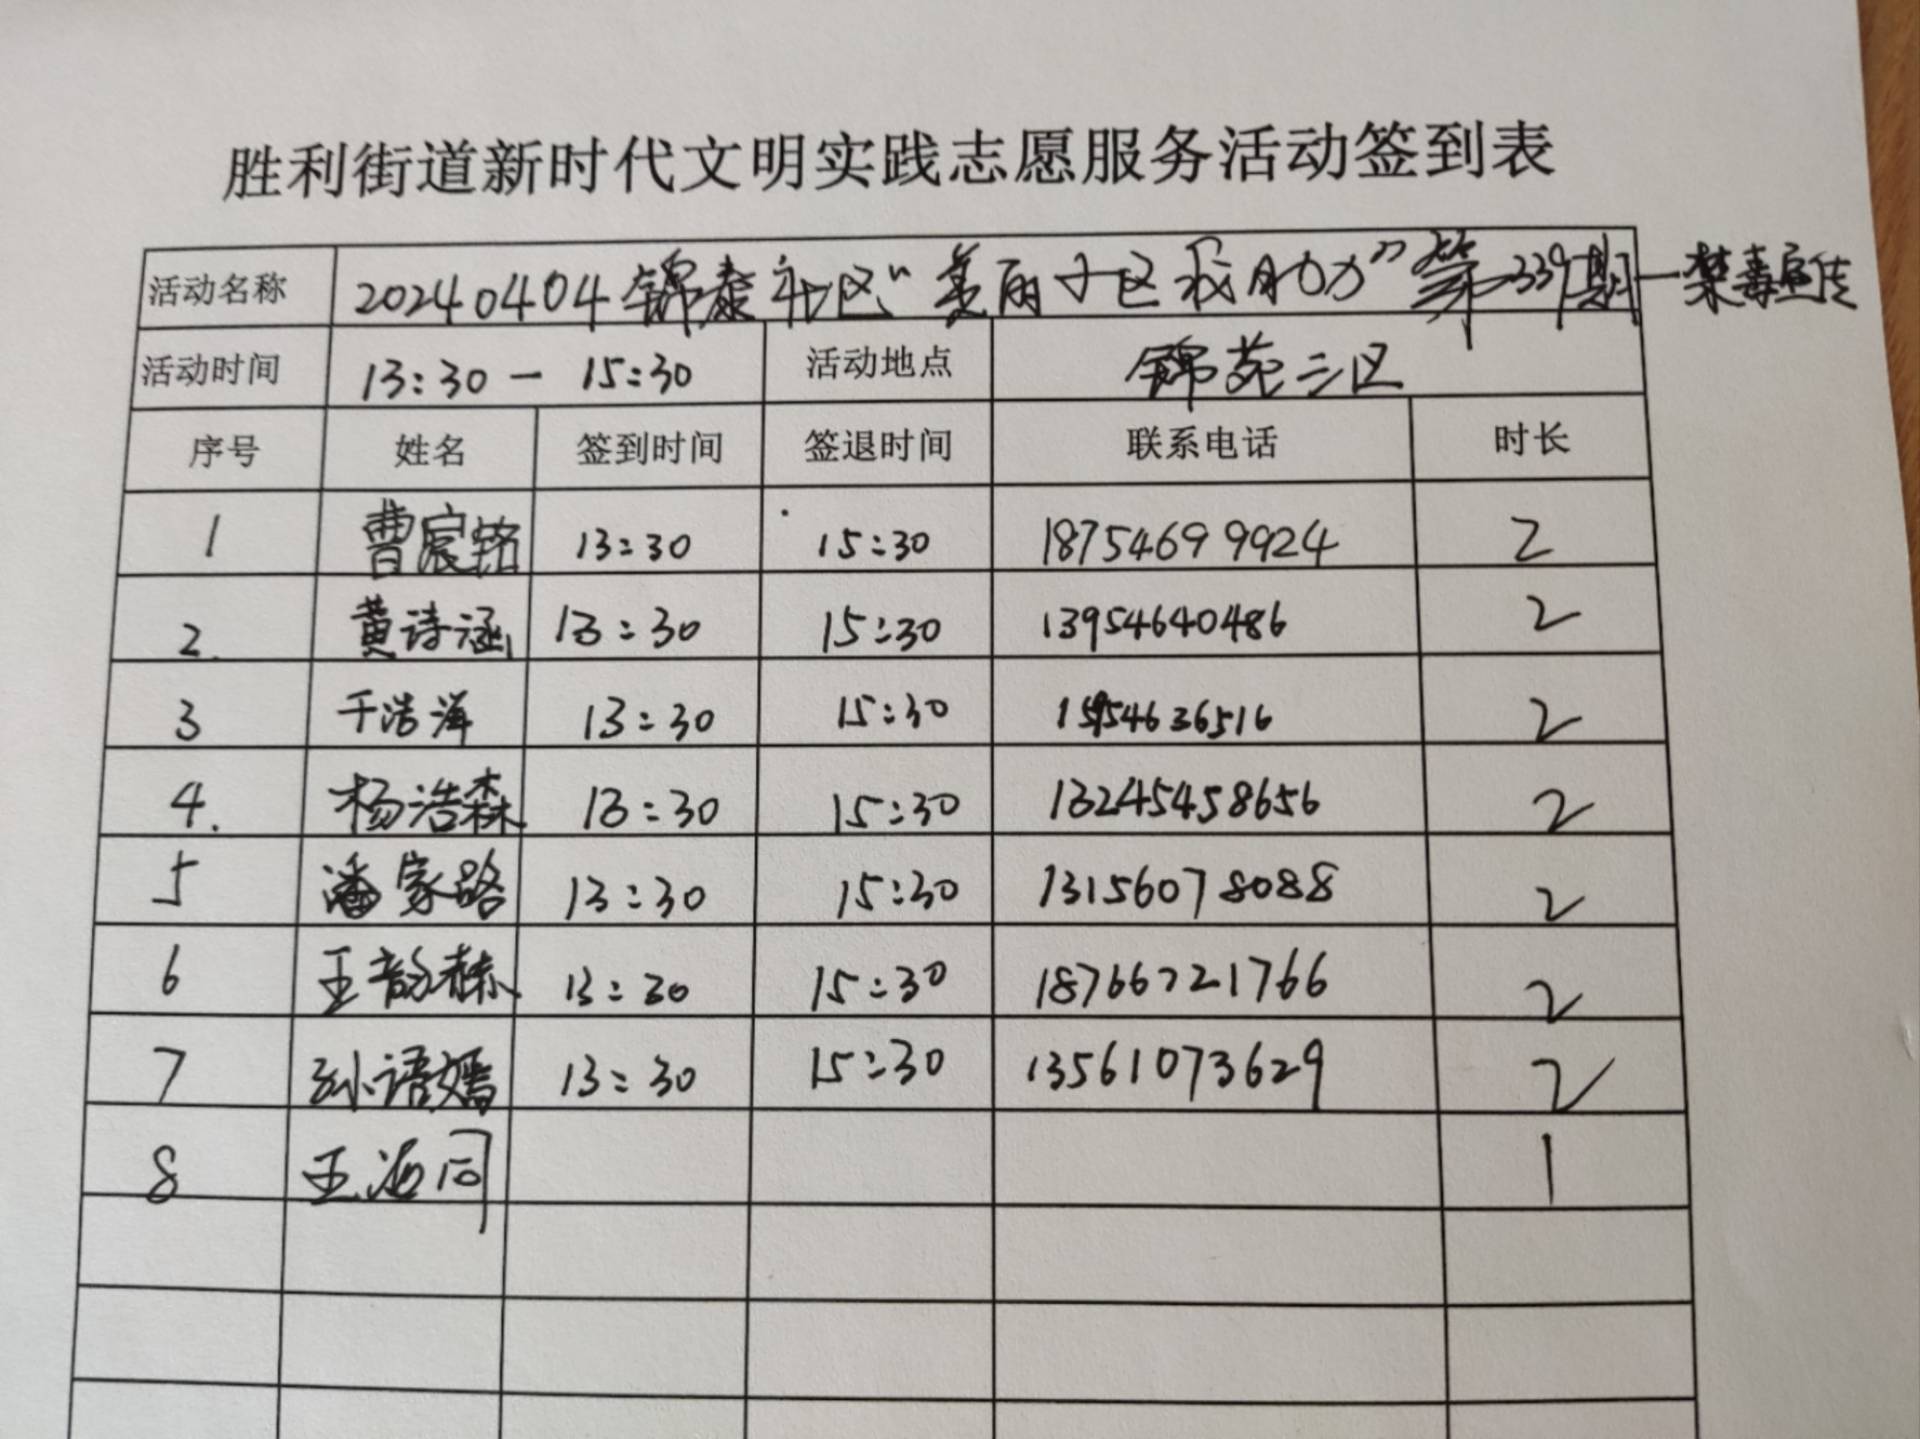 胜利街道新时代文明实践志愿服务活动签到表
活动名称 20240404锦泰社区“美丽小区我助力”第239期—禁毒宣传
活动时间 13:30 — 15:30 活动地点 锦苑三区
序号 姓名 签到时间 签退时间 联系电话 时长
1 曹宸铭 13:30 15:30 18754699924 2
2. 黄诗涵 13:30 15:30 13954640486 2
3 于浩洋 13:30 15:30 15954636516 2
4. 杨浩森 13:30 15:30 13245458656 2
5 潘家路 13:30 15:30 13156078088 2
6 王韵森 13:30 15:30 18766721766 2
7 孙语嫣 13:30 15:30 13561073629 2
8 王海同 1